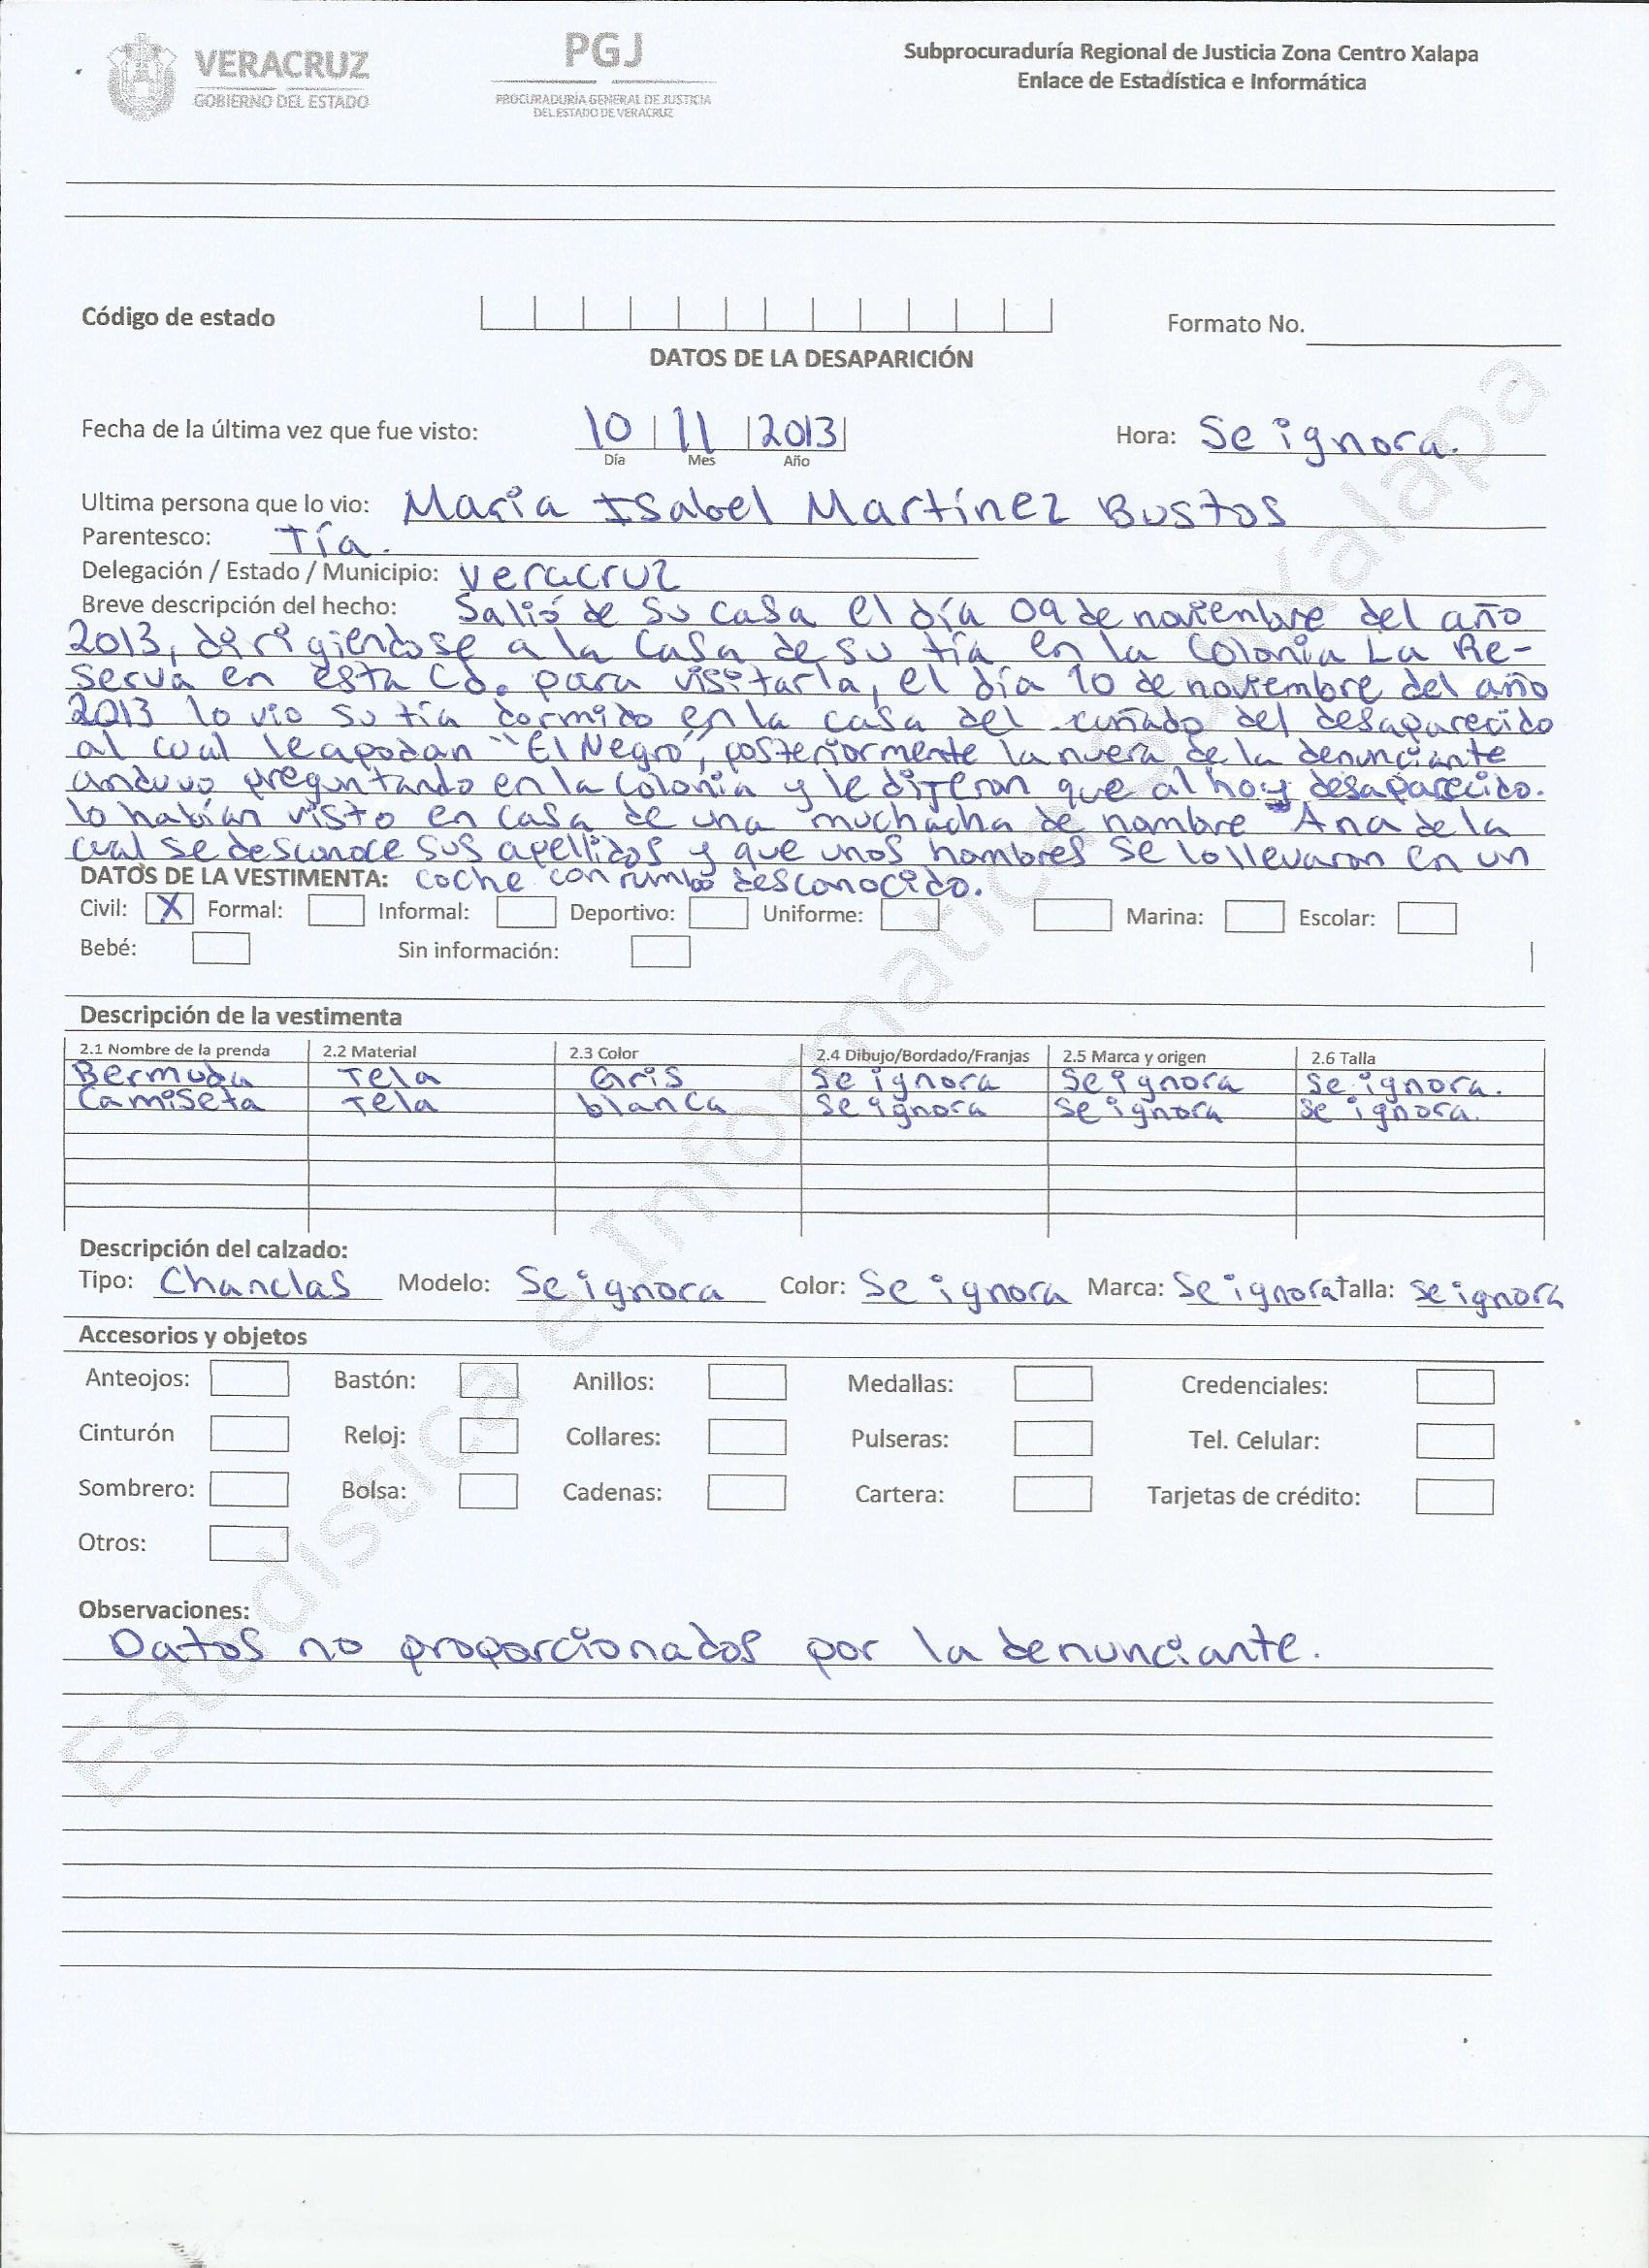 VERACRUZ
GOBIERNO DEL ESTADO
PGJ
PROCURADURÍA GENERAL DE JUSTICIA
DEL ESTADO DE VERACRUZ
Subprocuraduría Regional de Justicia Zona Centro Xalapa
Enlace de Estadística e Informática
Código de estado
Formato No.
DATOS DE LA DESAPARICIÓN
Fecha de la última vez que fue visto: 10 11 2013 Hora: Se ignora.
Día Mes Año
Ultima persona que lo vio: Maria Isabel Martínez Bustos
Parentesco: Tía.
Delegación / Estado / Municipio: Veracruz
Breve descripción del hecho: Salió de su casa el día 09 de noviembre del año
2013, dirigiendose a la casa de su tía en la Colonia La Re-
serva en esta Cd. para visitarla, el día 10 de noviembre del año
2013 lo vio su tía dormido en la casa del cuñado del desaparecido
al cual le apodan "El Negro", posteriormente la nuera de la denunciante
anduvo preguntando en la Colonia y le dijeron que al hoy desaparecido.
lo habían visto en casa de una muchacha de nombre Ana de la
cual se desconoce sus apellidos y que unos hombres se lo llevaron en un
DATOS DE LA VESTIMENTA: coche con rumbo desconocido.
Civil: X Formal: Informal: Deportivo: Uniforme: Marina: Escolar:
Bebé: Sin información:
Descripción de la vestimenta
2.1 Nombre de la prenda 2.2 Material 2.3 Color 2.4 Dibujo/Bordado/Franjas 2.5 Marca y origen 2.6 Talla
Bermuda Tela Gris Se ignora Se ignora Se ignora.
Camiseta Tela blanca Se ignora Se ignora Se ignora.
Descripción del calzado:
Tipo: Chanclas Modelo: Se ignora Color: Se ignora Marca: Se ignora Talla: Se ignora
Accesorios y objetos
Anteojos: Bastón: Anillos: Medallas: Credenciales:
Cinturón Reloj: Collares: Pulseras: Tel. Celular:
Sombrero: Bolsa: Cadenas: Cartera: Tarjetas de crédito:
Otros:
Observaciones:
Datos no proporcionados por la denunciante.
Estadística e Informática Xalapa